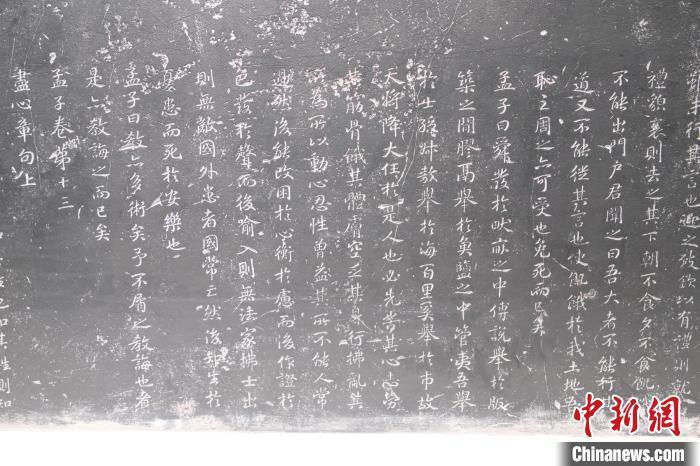 其言也迎之致敬以有禮則
禮貌衰則去之其下朝不食夕不食飢
不能出門戶君聞之曰吾大者不能行其
道又不能從其言也使飢餓於我土地吾
恥之周之亦可受也免死而已矣
孟子曰舜發於畎畝之中傅說舉於版
築之間膠鬲舉於魚鹽之中管夷吾舉
於士孫叔敖舉於海百里奚舉於市故
天將降大任於是人也必先苦其心志勞
其筋骨餓其體膚空乏其身行拂亂其
所為所以動心忍性曾益其所不能人常
過然後能改困於心衡於慮而後作徵於
色發於聲而後喻入則無法家拂士出
則無敵國外患者國常亡然後知生於
憂患而死於安樂也
孟子曰教亦多術矣予不屑之教誨也者
是亦教誨之而已矣
孟子卷第十三
盡心章句上
知其性則知
中新网
Chinanews.com